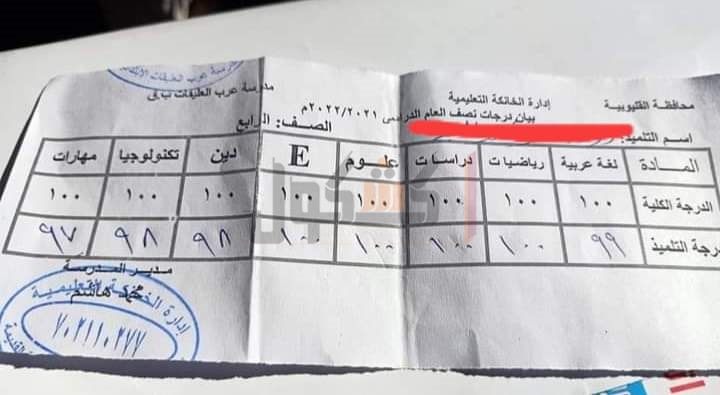 محافظة القليوبية
إدارة الخانكة التعليمية
مدرسة عرب العليقات ب ق
بيان درجات نصف العام الدراسى ٢٠٢٢/٢٠٢١م
اسم التلميذ: الصف: الرابع
المادة لغة عربية رياضيات دراسات علوم E دين تكنولوجيا مهارات
الدرجة الكلية ١٠٠ ١٠٠ ١٠٠ ١٠٠ ١٠٠ ١٠٠ ١٠٠ ١٠٠
درجة التلميذ ٩٩ ١٠٠ ١٠٠ ١٠٠ ١٠٠ ٩٨ ٩٨ ٩٧
مدير المدرسة
محمد هاشم
إدارة الخانكة التعليمية
كشكول